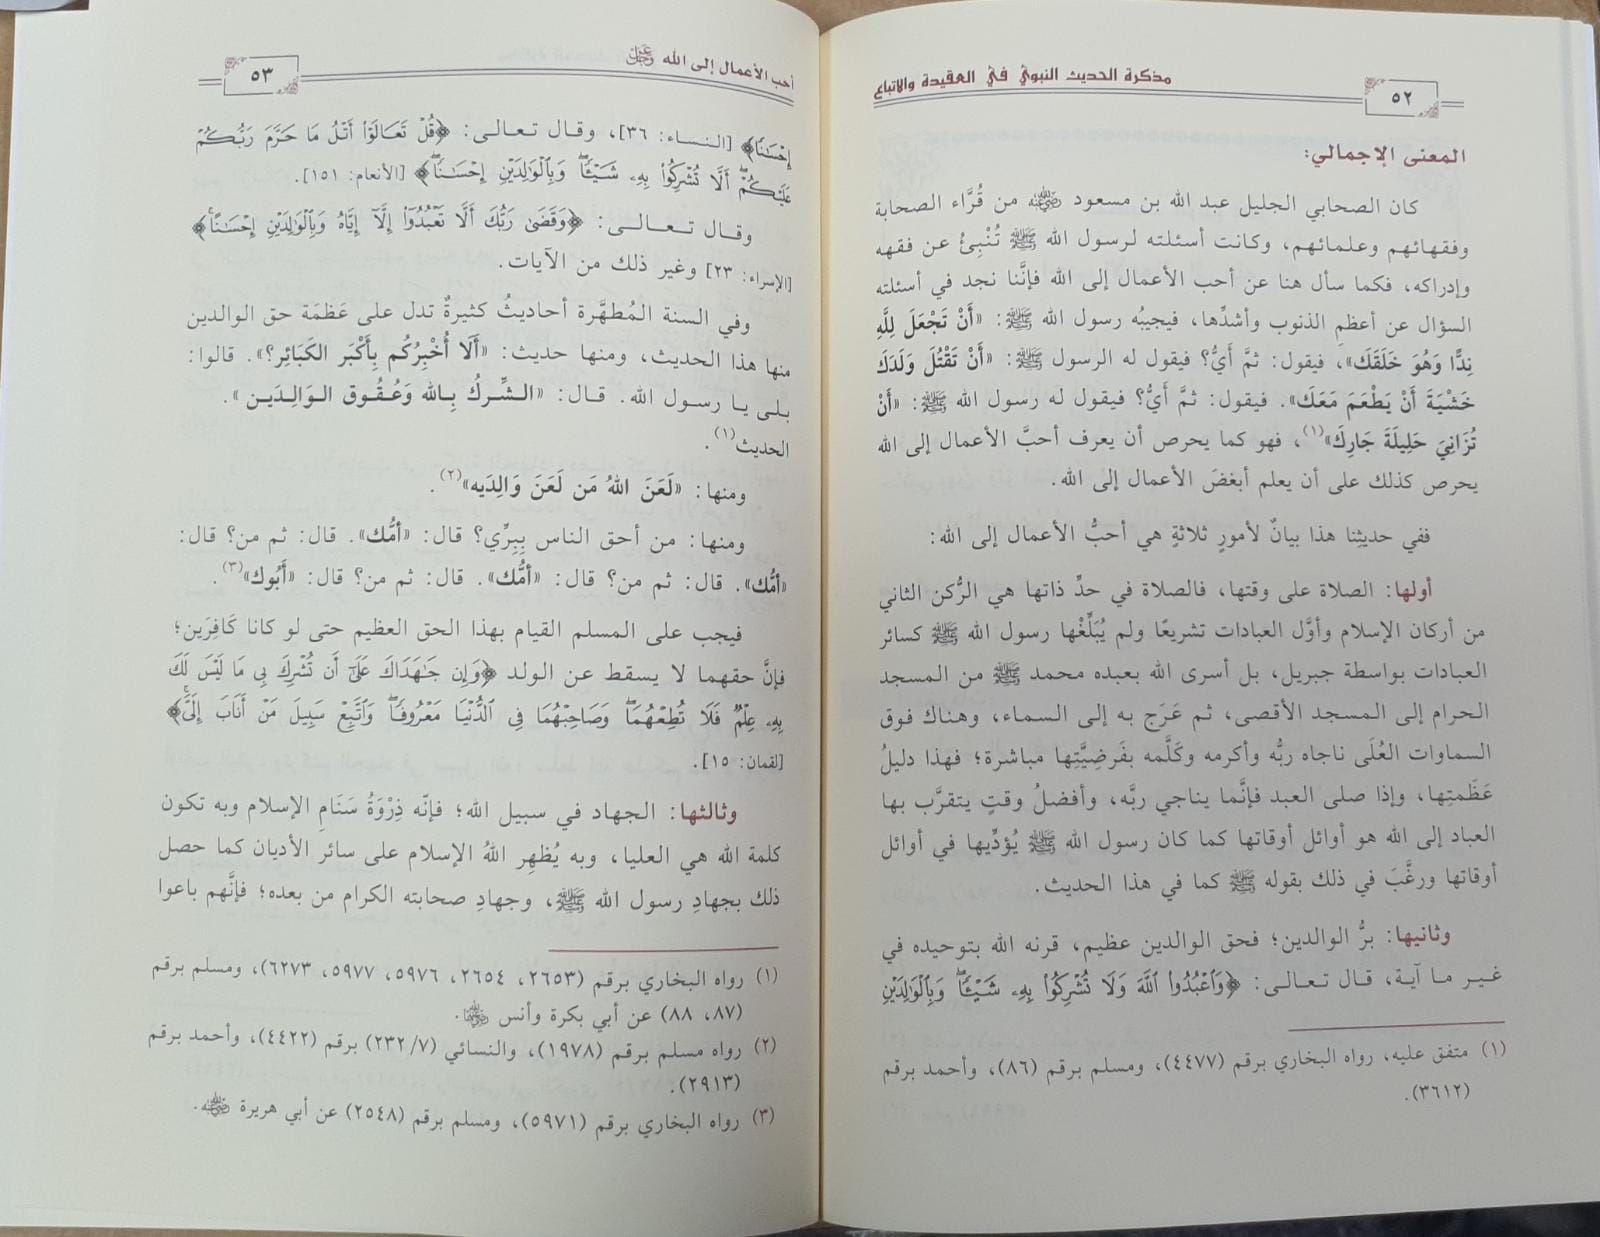 مذكرة الحديث النبوي في العقيدة والاتباع
٥٢
المعنى الإجمالي:
كان الصحابي الجليل عبد الله بن مسعود ﵁ من قُرَّاء الصحابة
وفقهائهم وعلمائهم، وكانت أسئلته لرسول الله ﷺ تُنْبِئُ عن فقهه
وإدراكه، فكما سأل هنا عن أحب الأعمال إلى الله فإنَّنا نجد في أسئلته
السؤال عن أعظمِ الذنوب وأشدِّها، فيجيبُه رسول الله ﷺ: «أَنْ تَجْعَلَ لِلَّهِ
نِدًّا وَهُوَ خَلَقَكَ»، فيقول: ثمَّ أَيُّ؟ فيقول له الرسول ﷺ: «أَنْ تَقْتُلَ وَلَدَكَ
خَشْيَةَ أَنْ يَطْعَمَ مَعَكَ». فيقول: ثمَّ أَيُّ؟ فيقول له رسول الله ﷺ: «أَنْ
تُزَانِيَ حَلِيلَةَ جَارِكَ»(١)، فهو كما يحرص أن يعرف أحبَّ الأعمال إلى الله
يحرص كذلك على أن يعلم أبغضَ الأعمال إلى الله.
ففي حديثِنا هذا بيانٌ لأمورٍ ثلاثةٍ هي أحبُّ الأعمال إلى الله:
أولها: الصلاة على وقتها، فالصلاة في حدِّ ذاتها هي الرُّكن الثاني
من أركان الإسلام وأوَّل العبادات تشريعًا ولم يُبَلِّغْها رسول الله ﷺ كسائر
العبادات بواسطة جبريل، بل أسرى الله بعبده محمد ﷺ من المسجد
الحرام إلى المسجد الأقصى، ثم عَرَج به إلى السماء، وهناك فوق
السماوات العُلَى ناجاه ربُّه وأكرمه وكَلَّمه بفَرضِيَّتِها مباشرة؛ فهذا دليلُ
عَظَمتِها، وإذا صلى العبد فإنَّما يناجي ربَّه، وأفضلُ وقتٍ يتقرَّب بها
العباد إلى الله هو أوائل أوقاتها كما كان رسول الله ﷺ يُؤدِّيها في أوائل
أوقاتها ورغَّبَ في ذلك بقوله ﷺ كما في هذا الحديث.
وثانيها: برُّ الوالدين؛ فحق الوالدين عظيم، قرنه الله بتوحيده في
غير ما آية، قال تعالى: ﴿وَٱعۡبُدُواْ ٱللَّهَ وَلَا تُشۡرِكُواْ بِهِۦ شَيۡـٔٗاۖ وَبِٱلۡوَٰلِدَيۡنِ
(١) متفق عليه، رواه البخاري برقم (٤٤٧٧)، ومسلم برقم (٨٦)، وأحمد برقم
(٣٦١٢).
أحب الأعمال إلى الله ﷿
٥٣
إِحۡسَٰنٗا﴾ [النساء: ٣٦]، وقال تعالى: ﴿قُلۡ تَعَالَوۡاْ أَتۡلُ مَا حَرَّمَ رَبُّكُمۡ
عَلَيۡكُمۡۖ أَلَّا تُشۡرِكُواْ بِهِۦ شَيۡـٔٗاۖ وَبِٱلۡوَٰلِدَيۡنِ إِحۡسَٰنٗاۖ﴾ [الأنعام: ١٥١].
وقال تعالى: ﴿وَقَضَىٰ رَبُّكَ أَلَّا تَعۡبُدُوٓاْ إِلَّآ إِيَّاهُ وَبِٱلۡوَٰلِدَيۡنِ إِحۡسَٰنًاۚ﴾
[الإسراء: ٢٣] وغير ذلك من الآيات.
وفي السنة المُطهَّرة أحاديثُ كثيرةٌ تدل على عَظمَة حق الوالدين
منها هذا الحديث، ومنها حديث: «أَلَا أُخْبِرُكُم بِأَكْبَر الكَبَائِر؟». قالوا:
بلى يا رسول الله. قال: «الشِّركُ بِالله وَعُقُوق الوَالِدَين».
الحديث(١).
ومنها: «لَعَنَ اللهُ مَن لَعَنَ وَالِدَيه»(٢).
ومنها: من أحق الناس بِبِرِّي؟ قال: «أمُّك». قال: ثم من؟ قال:
«أمُّك». قال: ثم من؟ قال: «أمُّك». قال: ثم من؟ قال: «أَبُوك»(٣).
فيجب على المسلم القيام بهذا الحق العظيم حتى لو كانا كَافِرَين؛
فإنَّ حقهما لا يسقط عن الولد ﴿وَإِن جَٰهَدَاكَ عَلَىٰٓ أَن تُشۡرِكَ بِي مَا لَيۡسَ لَكَ
بِهِۦ عِلۡمٞ فَلَا تُطِعۡهُمَاۖ وَصَاحِبۡهُمَا فِي ٱلدُّنۡيَا مَعۡرُوفٗاۖ وَٱتَّبِعۡ سَبِيلَ مَنۡ أَنَابَ إِلَيَّۚ﴾
[لقمان: ١٥].
وثالثها: الجهاد في سبيل الله؛ فإنّه ذِرْوَةُ سَنَامِ الإسلام وبه تكون
كلمة الله هي العليا، وبه يُظهِر اللهُ الإسلام على سائر الأديان كما حصل
ذلك بجهادِ رسول الله ﷺ، وجهادِ صحابته الكرام من بعده؛ فإنَّهم باعوا
(١) رواه البخاري برقم (٢٦٥٣، ٢٦٥٤، ٥٩٧٦، ٥٩٧٧، ٦٢٧٣)، ومسلم برقم
(٨٧، ٨٨) عن أبي بكرة وأنس ﵄.
(٢) رواه مسلم برقم (١٩٧٨)، والنسائي (٢٣٢/٧) برقم (٤٤٢٢)، وأحمد برقم
(٢٩١٣).
(٣) رواه البخاري برقم (٥٩٧١)، ومسلم برقم (٢٥٤٨) عن أبي هريرة ﵁.